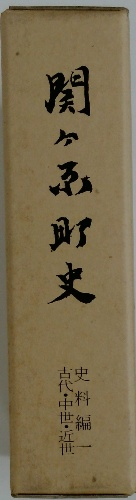 関ヶ原町史
史料編一
古代・中世・近世